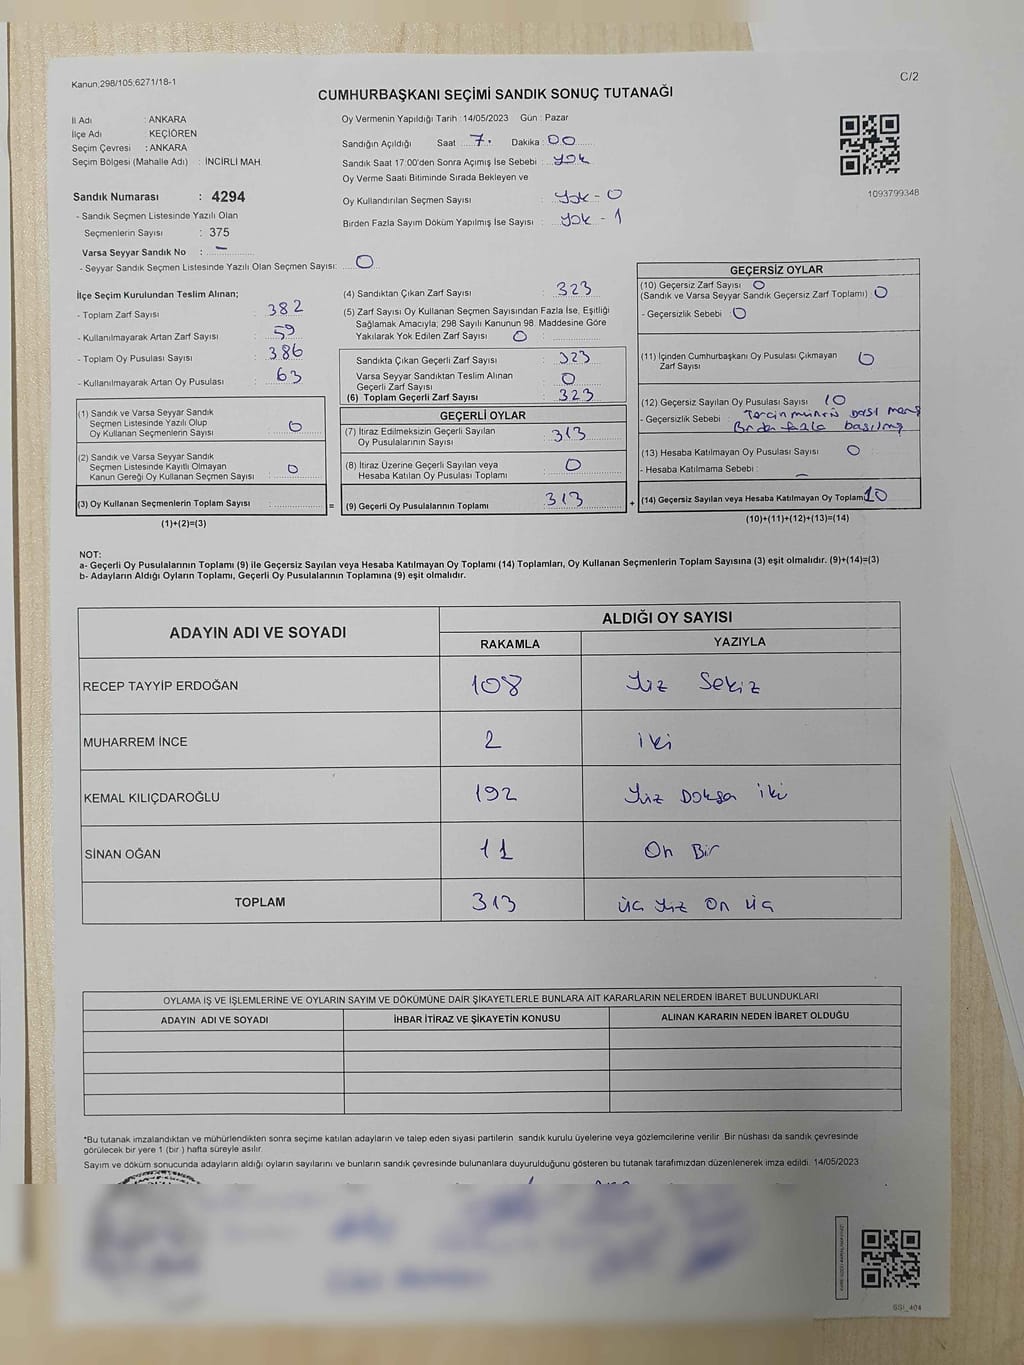 Kanun;298/105;6271/18-1
C/2
CUMHURBAŞKANI SEÇİMİ SANDIK SONUÇ TUTANAĞI
İl Adı : ANKARA
İlçe Adı : KEÇİÖREN
Seçim Çevresi : ANKARA
Seçim Bölgesi (Mahalle Adı) : İNCİRLİ MAH.
Oy Vermenin Yapıldığı Tarih : 14/05/2023 Gün : Pazar
Sandığın Açıldığı Saat 7. Dakika : 00
Sandık Saat 17:00'den Sonra Açımış İse Sebebi : Yok
Oy Verme Saati Bitiminde Sırada Bekleyen ve
Oy Kullandırılan Seçmen Sayısı : Yok - 0
Birden Fazla Sayım Döküm Yapılmış İse Sayısı : Yok - 1
1093799348
Sandık Numarası : 4294
- Sandık Seçmen Listesinde Yazılı Olan
Seçmenlerin Sayısı : 375
Varsa Seyyar Sandık No : -
- Seyyar Sandık Seçmen Listesinde Yazılı Olan Seçmen Sayısı: 0
İlçe Seçim Kurulundan Teslim Alınan;
- Toplam Zarf Sayısı : 382
- Kullanılmayarak Artan Zarf Sayısı : 59
- Toplam Oy Pusulası Sayısı : 386
- Kullanılmayarak Artan Oy Pusulası : 63
(1) Sandık ve Varsa Seyyar Sandık
Seçmen Listesinde Yazılı Olup
Oy Kullanan Seçmenlerin Sayısı : 0
(2) Sandık ve Varsa Seyyar Sandık
Seçmen Listesinde Kayıtlı Olmayan
Kanun Gereği Oy Kullanan Seçmen Sayısı : 0
(3) Oy Kullanan Seçmenlerin Toplam Sayısı : =
(1)+(2)=(3)
(4) Sandıktan Çıkan Zarf Sayısı : 323
(5) Zarf Sayısı Oy Kullanan Seçmen Sayısından Fazla İse, Eşitliği
Sağlamak Amacıyla; 298 Sayılı Kanunun 98. Maddesine Göre
Yakılarak Yok Edilen Zarf Sayısı : 0
Sandıkta Çıkan Geçerli Zarf Sayısı : 323
Varsa Seyyar Sandıktan Teslim Alınan
Geçerli Zarf Sayısı : 0
(6) Toplam Geçerli Zarf Sayısı : 323
GEÇERLİ OYLAR
(7) İtiraz Edilmeksizin Geçerli Sayılan
Oy Pusulalarının Sayısı : 313
(8) İtiraz Üzerine Geçerli Sayılan veya
Hesaba Katılan Oy Pusulası Toplamı : 0
(9) Geçerli Oy Pusulalarının Toplamı : 313 +
GEÇERSİZ OYLAR
(10) Geçersiz Zarf Sayısı 0
(Sandık ve Varsa Seyyar Sandık Geçersiz Zarf Toplamı) : 0
- Geçersizlik Sebebi : 0
(11) İçinden Cumhurbaşkanı Oy Pusulası Çıkmayan
Zarf Sayısı : 0
(12) Geçersiz Sayılan Oy Pusulası Sayısı : 10
- Geçersizlik Sebebi :
Birden fazla basılmış
(13) Hesaba Katılmayan Oy Pusulası Sayısı : 0
- Hesaba Katılmama Sebebi : -
(14) Geçersiz Sayılan veya Hesaba Katılmayan Oy Toplam 10
(10)+(11)+(12)+(13)=(14)
NOT:
a- Geçerli Oy Pusulalarının Toplamı (9) ile Geçersiz Sayılan veya Hesaba Katılmayan Oy Toplamı (14) Toplamları, Oy Kullanan Seçmenlerin Toplam Sayısına (3) eşit olmalıdır. (9)+(14)=(3)
b- Adayların Aldığı Oyların Toplamı, Geçerli Oy Pusulalarının Toplamına (9) eşit olmalıdır.
ADAYIN ADI VE SOYADI ALDIĞI OY SAYISI
RAKAMLA YAZIYLA
RECEP TAYYİP ERDOĞAN 108 Yüz Sekiz
MUHARREM İNCE 2 iki
KEMAL KILIÇDAROĞLU 192 Yüz Doksan iki
SİNAN OĞAN 11 On Bir
TOPLAM 313 üç Yüz On üç
OYLAMA İŞ VE İŞLEMLERİNE VE OYLARIN SAYIM VE DÖKÜMÜNE DAİR ŞİKAYETLERLE BUNLARA AİT KARARLARIN NELERDEN İBARET BULUNDUKLARI
ADAYIN ADI VE SOYADI İHBAR İTİRAZ VE ŞİKAYETİN KONUSU ALINAN KARARIN NEDEN İBARET OLDUĞU
*Bu tutanak imzalandıktan ve mühürlendikten sonra seçime katılan adayların ve talep eden siyasi partilerin sandık kurulu üyelerine veya gözlemcilerine verilir. Bir nüshası da sandık çevresinde
görülecek bir yere 1 (bir ) hafta süreyle asılır.
Sayım ve döküm sonucunda adayların aldığı oyların sayılarını ve bunların sandık çevresinde bulunanlara duyurulduğunu gösteren bu tutanak tarafımızdan düzenlenerek imza edildi. 14/05/2023
SSİ_404